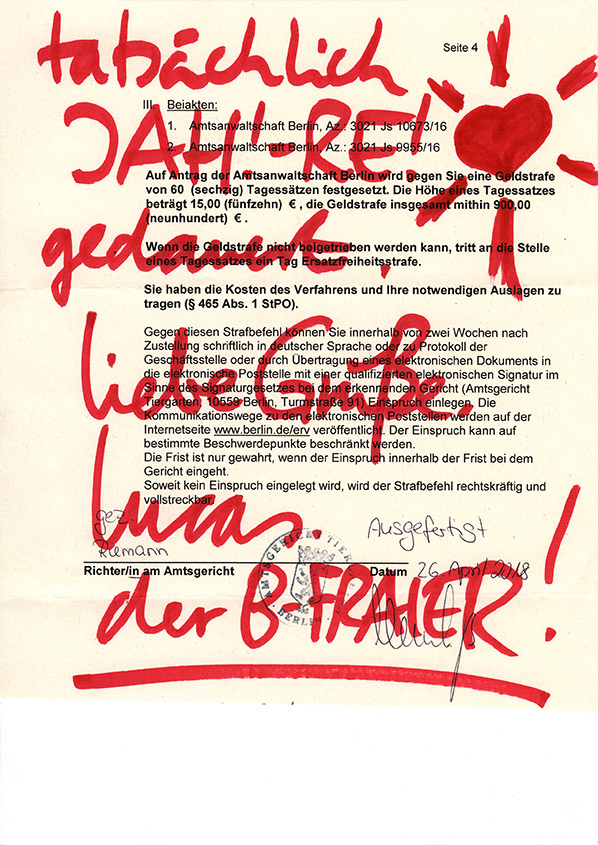 Seite 4
III. Beiakten:
1. Amtsanwaltschaft Berlin, Az.: 3021 Js 10673/16
2. Amtsanwaltschaft Berlin, Az.: 3021 Js 9955/16
Auf Antrag der Amtsanwaltschaft Berlin wird gegen Sie eine Geldstrafe
von 60 (sechzig) Tagessätzen festgesetzt. Die Höhe eines Tagessatzes
beträgt 15,00 (fünfzehn) €, die Geldstrafe insgesamt mithin 900,00
(neunhundert) €.
Wenn die Geldstrafe nicht beigetrieben werden kann, tritt an die Stelle
eines Tagessatzes ein Tag Ersatzfreiheitsstrafe.
Sie haben die Kosten des Verfahrens und Ihre notwendigen Auslagen zu
tragen (§ 465 Abs. 1 StPO).
Gegen diesen Strafbefehl können Sie innerhalb von zwei Wochen nach
Zustellung schriftlich in deutscher Sprache oder zu Protokoll der
Geschäftsstelle oder durch Übertragung eines elektronischen Dokuments in
die elektronische Poststelle mit einer qualifizierten elektronischen Signatur im
Sinne des Signaturgesetzes bei dem erkennenden Gericht (Amtsgericht
Tiergarten, 10559 Berlin, Turmstraße 91) Einspruch einlegen. Die
Kommunikationswege zu den elektronischen Poststellen werden auf der
Internetseite www.berlin.de/erv veröffentlicht. Der Einspruch kann auf
bestimmte Beschwerdepunkte beschränkt werden.
Die Frist ist nur gewahrt, wenn der Einspruch innerhalb der Frist bei dem
Gericht eingeht.
Soweit kein Einspruch eingelegt wird, wird der Strafbefehl rechtskräftig und
vollstreckbar.
gez.
Riemann
Ausgefertigt
Richter/in am Amtsgericht
Datum 26. April 2018
AMTSGERICHT TIER
BERLIN
tatsächlich
JAH'-RE!
gedauert.
liebe Grüße
Lucas
der B-FRAIER!